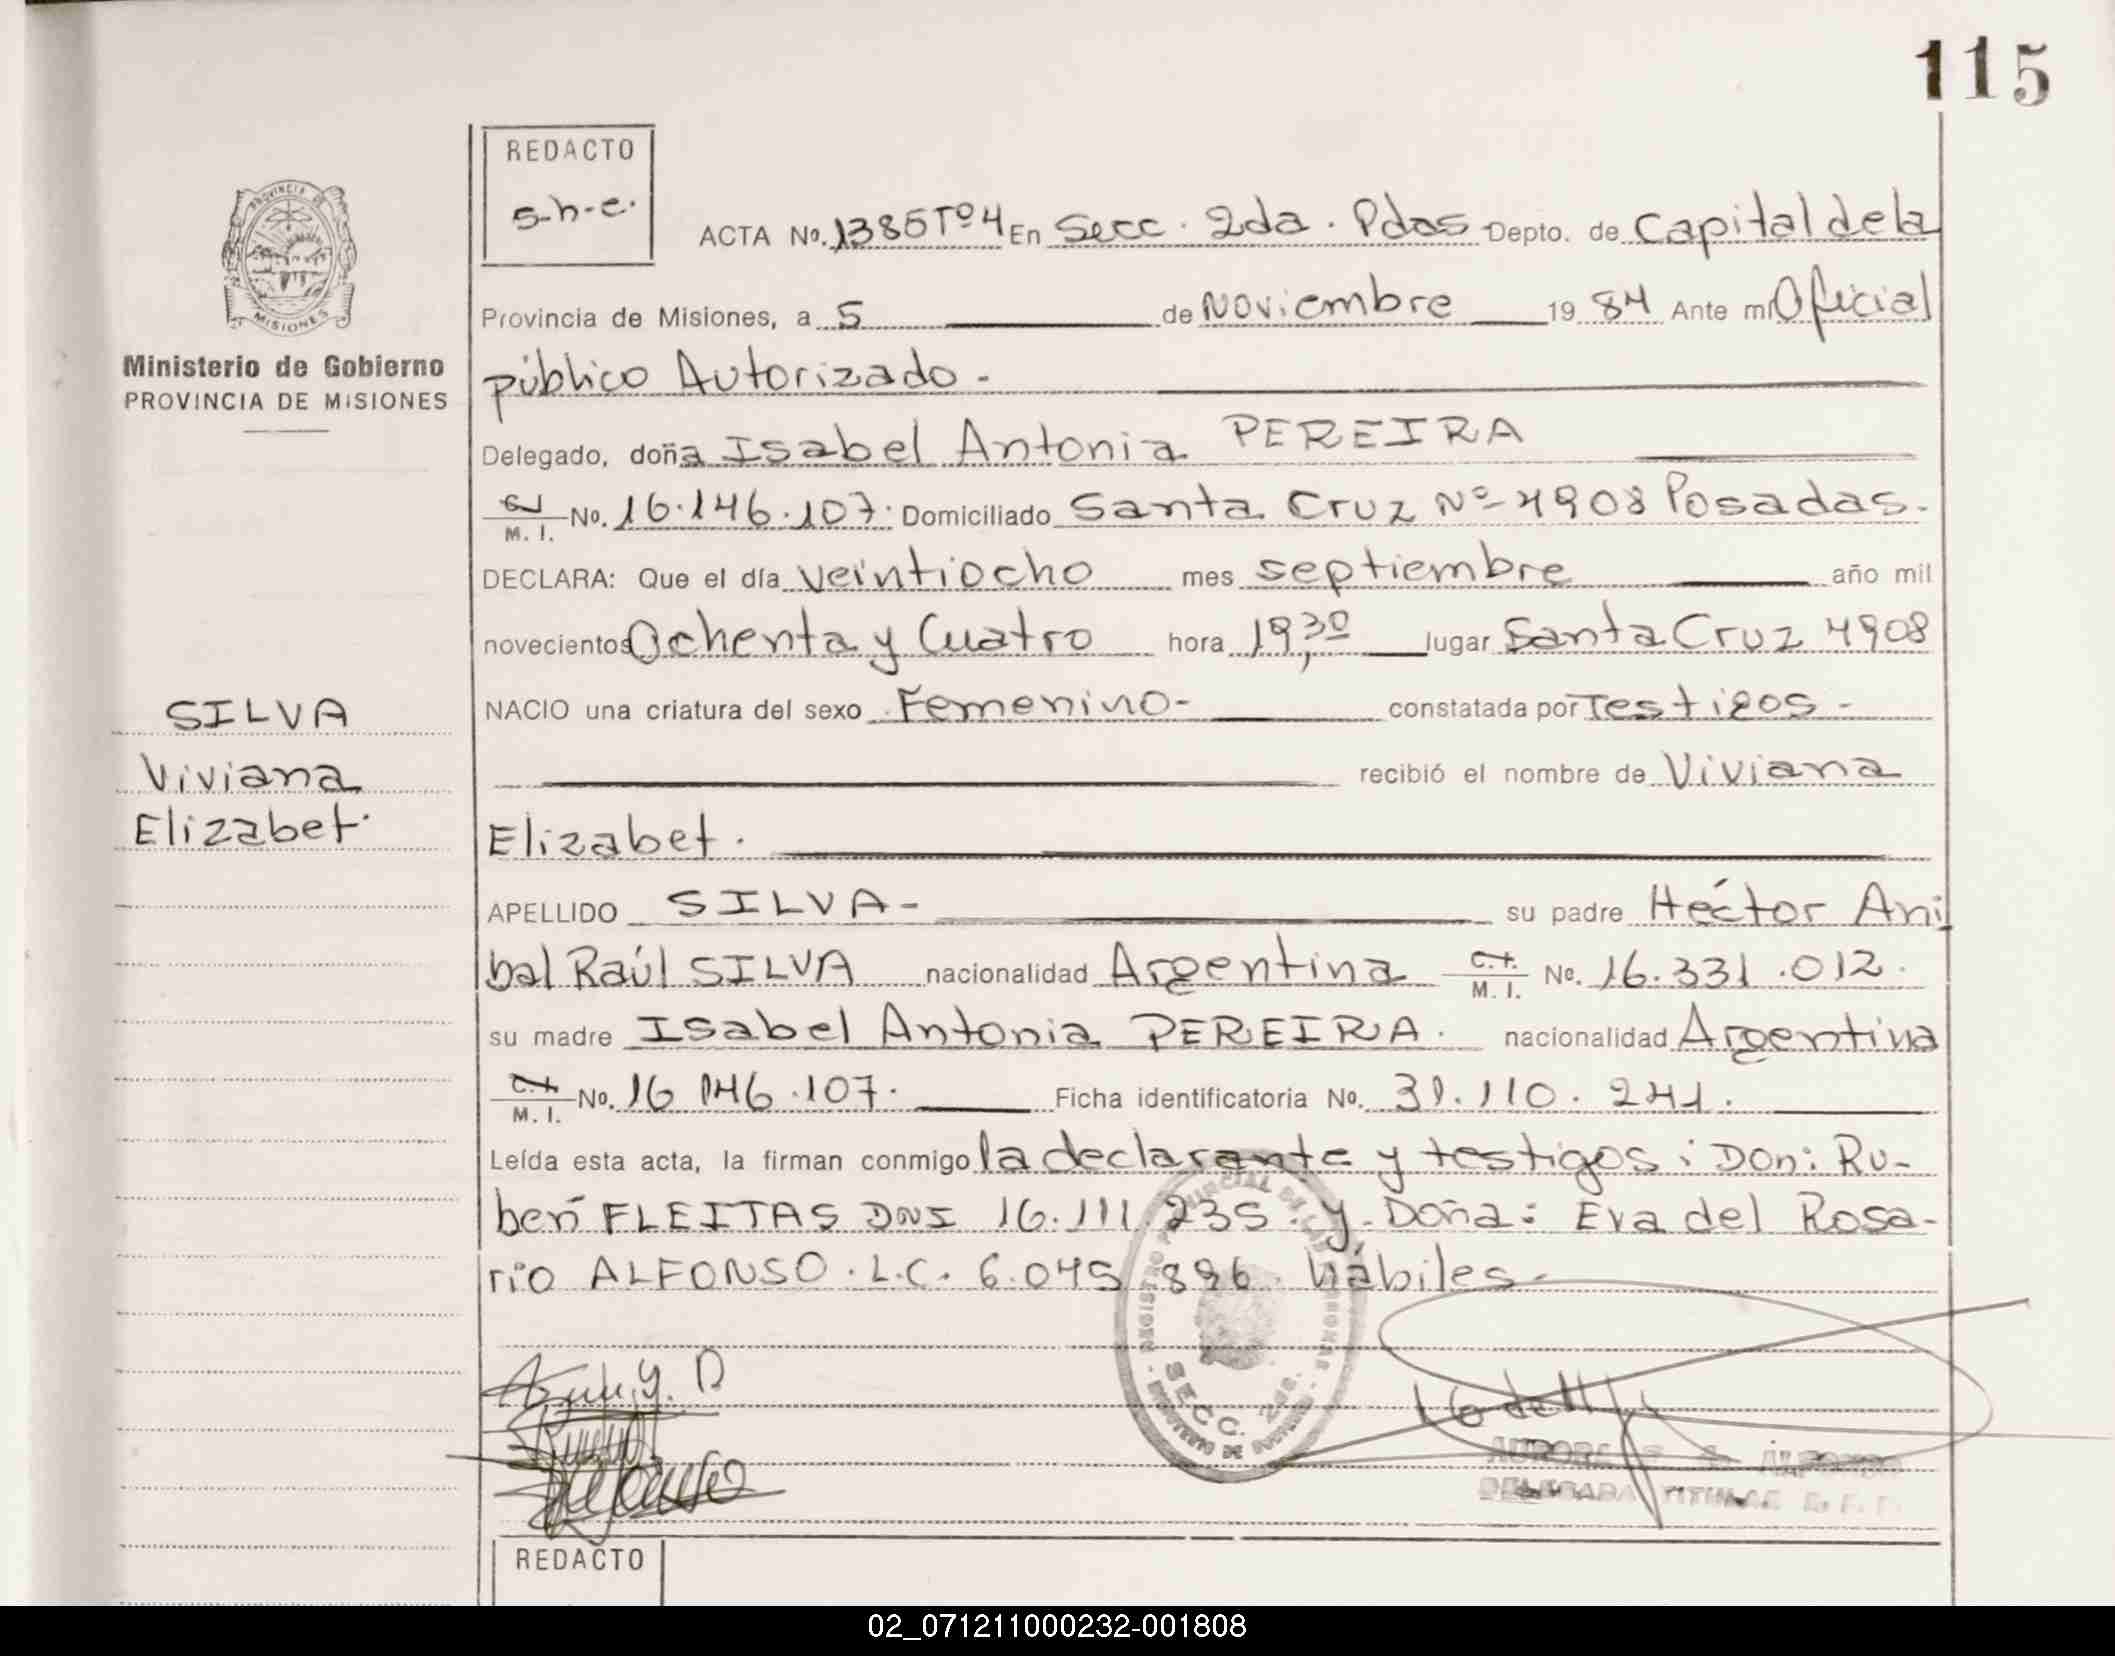 115
REDACTO
s-h-e.
ACTA No. 1385 Tº 4 En Secc. 2da. Pdas Depto. de Capital de la
Provincia de Misiones, a 5 de Noviembre 1984 Ante mi Oficial
público Autorizado.-
Delegado, doña Isabel Antonia PEREIRA
M. I. No. 16.146.107. Domiciliado Santa Cruz Nº 4908 Posadas.
DECLARA: Que el día veintiocho mes septiembre año mil
novecientos Ochenta y Cuatro hora 19,30 lugar Santa Cruz 4908
NACIO una criatura del sexo Femenino- constatada por Testigos-
recibió el nombre de Viviana
Elizabet.
APELLIDO SILVA- su padre Héctor Ani
bal Raúl SILVA nacionalidad Argentina M. I. No. 16.331.012.
su madre Isabel Antonia PEREIRA. nacionalidad Argentina
M. I. No. 16 146.107. Ficha identificatoria No. 31.110.241.
Leída esta acta, la firman conmigo la declarante y testigos: Don: Ru-
ben FLEITAS DNI 16.111.235. y Doña: Eva del Rosa-
rio ALFONSO. L.C. 6.045 896. hábiles-
PROVINCIA DE
MISIONES
Ministerio de Gobierno
PROVINCIA DE MISIONES
SILVA
Viviana
Elizabet.
REGISTRO PROVINCIAL DE LAS PERSONAS
SECC. 2da.
DELEGADA TITULAR
REDACTO
02_071211000232-001808